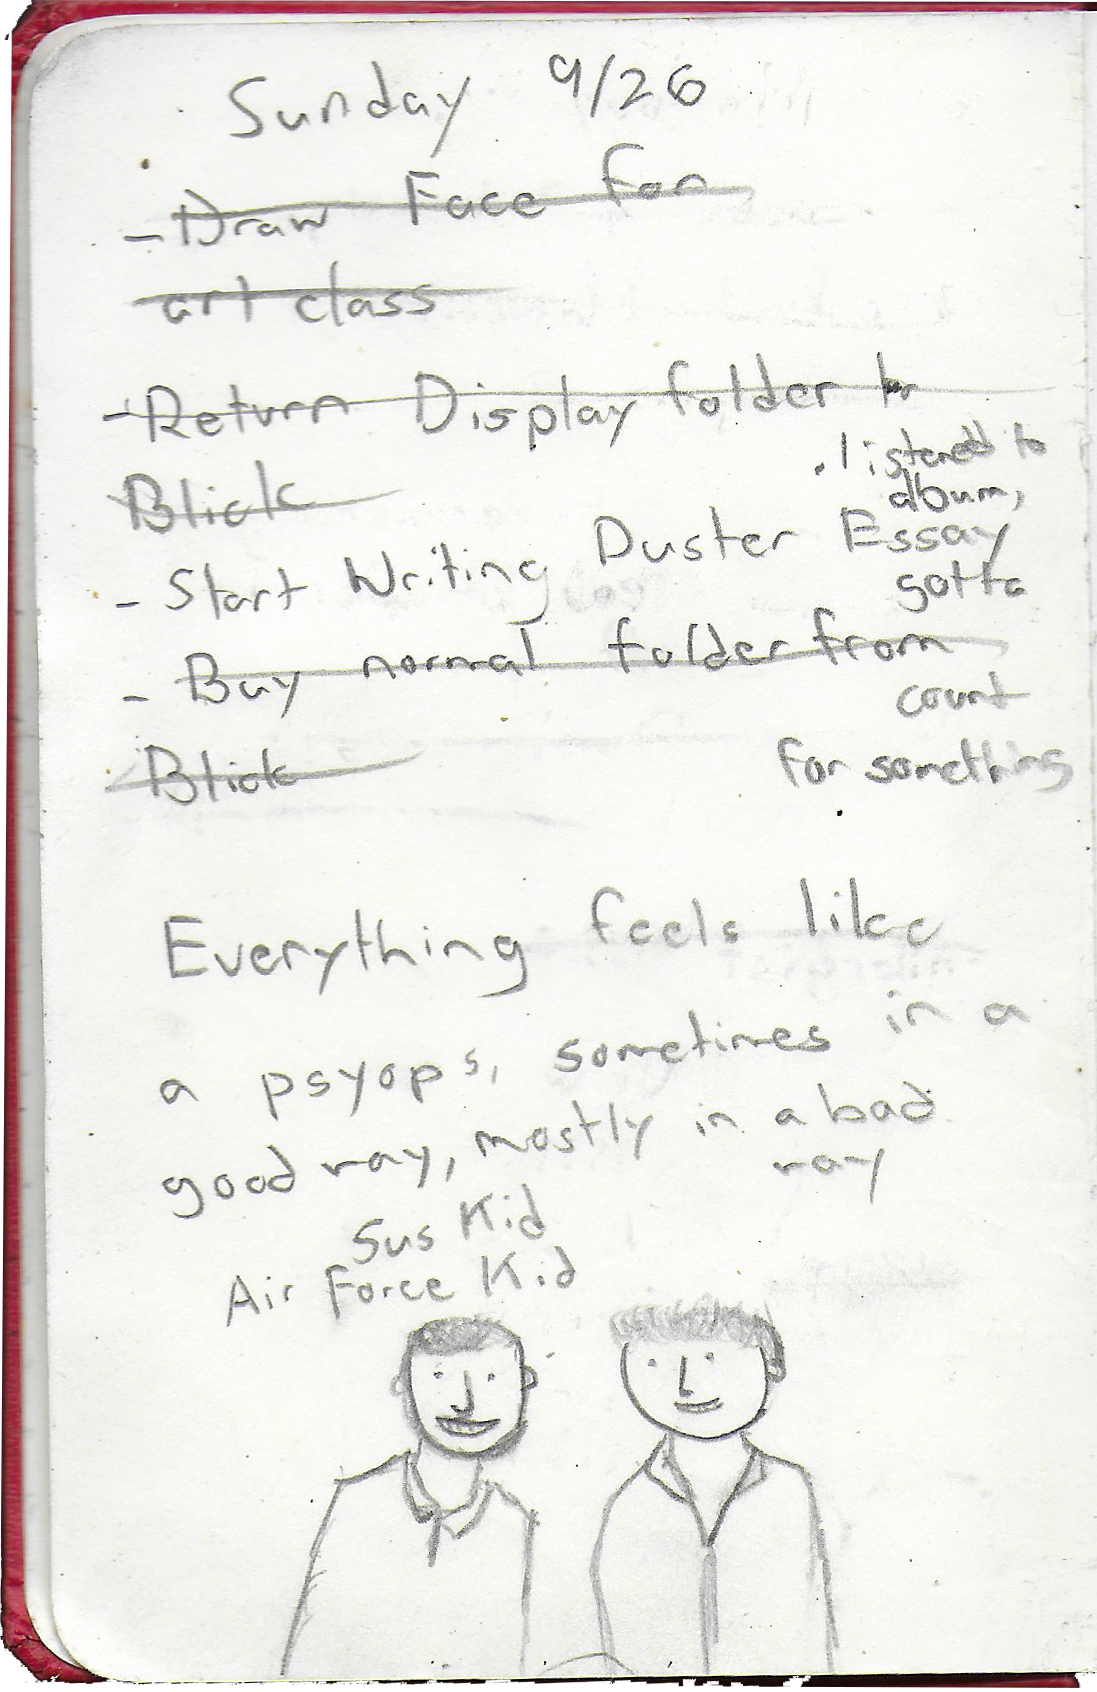 Sunday 9/26
- Draw Face for
art class
- Return Display folder to
Blick
- Start Writing Duster Essay
. listened to
album,
gotta
count
for something
- Buy normal folder from
Blick
Everything feels like
a psyops, sometimes in a
good way, mostly in a bad
way
Sus Kid
Air Force Kid